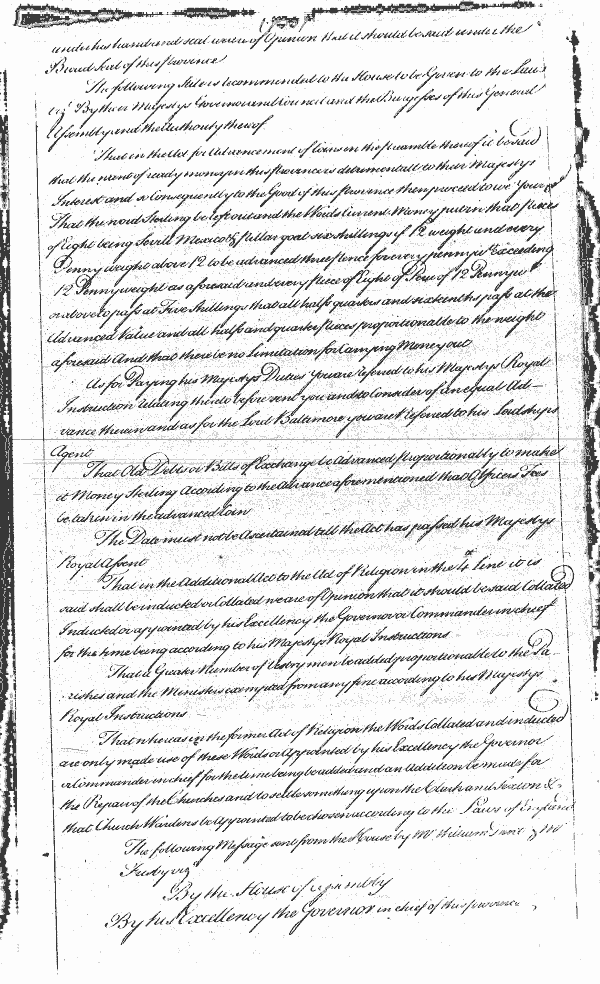 under his hand and seal we are of Opinion that it should be said under the
Broad Seal of this Province
The following Stile is recommended to the House to be Given to the Laws
viz.t By their Majestys Governor and Council and the Burgesses of this General
Assembly and the Authority thereof
That in the Act for Advancement of Coins in the preamble thereof it be said
that the want of ready money in this Province is detrimentall to their Majestys
Interest and so Consequently to the Good of this Province then proceed to
That the word Sterling be left out and the Words Current Money put in that pieces
of Eight being Sevill Mexico & pillar go at six shillings if 12 weight and every
Penny weight above 12 to be advanced three pence for every penny w.t Exceeding
12 Penny weight as aforesaid and every piece of Eight of Peru of 12 Penny w.t
or above to pass at Five shillings that all half quarters and sixteenths pass at the
Advanced Value and all half and quarter pieces proportionable to the weight
aforesaid And that there be no Limitation for Carrying Money out
As for Paying his Majestys Duties You are referred to his Majestys Royal
Instruction relating thereto before sent you and to Consider of an equal Ad-
vance therein and as for the Lord Baltimore you are Referred to his Lordships
Agent
That Old Debts or Bills of Exchange be Advanced proportionably to make
it Money Sterling According to the Advance aforementioned that Officers Fees
be taken in the advanced Coin
The Date must not be Ascertained till the Act has passed his Majestys
Royal Assent
That in the Additional Act to the Act of Religion in the 4th Line it is
said shall be inducted or Collated we are of Opinion that it should be said Collated
Inducted or appointed by his Excellency the Governor or Commander in chief
for the time being according to his Majestys Royal Instructions
That a Greater Number of Vestry men be added proportionable to the Pa-
rishes and the Ministers exempted from any fine according to his Majestys
Royal Instructions
That whereas in the former Act of Religion the Words Collated and inducted
are only made use of these Words or Appointed by his Excellency the Governor
or Commander in chief for the time being be added and an Addition be made for
the Repair of the Churches and to settle something upon the Clerk and Sexton &
that Church Wardens be Appointed to be chosen according to the Laws of England
The following Message sent from the House by Mr William & Mr
viz.t
By the House of Assembly
By his Excellency the Governor in chief of this province